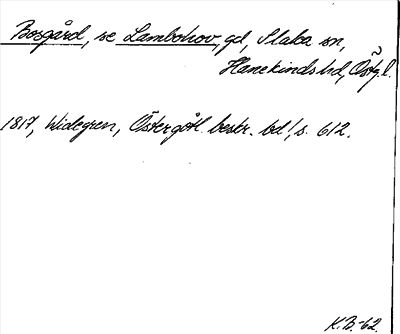 Bosgård, se Lambohov, gd, Slaka sn,
Hanekinds hd, Östgl.
1817, Widegren, Östergötl. beskr. bd 1, s. 612.
K.B.-62.